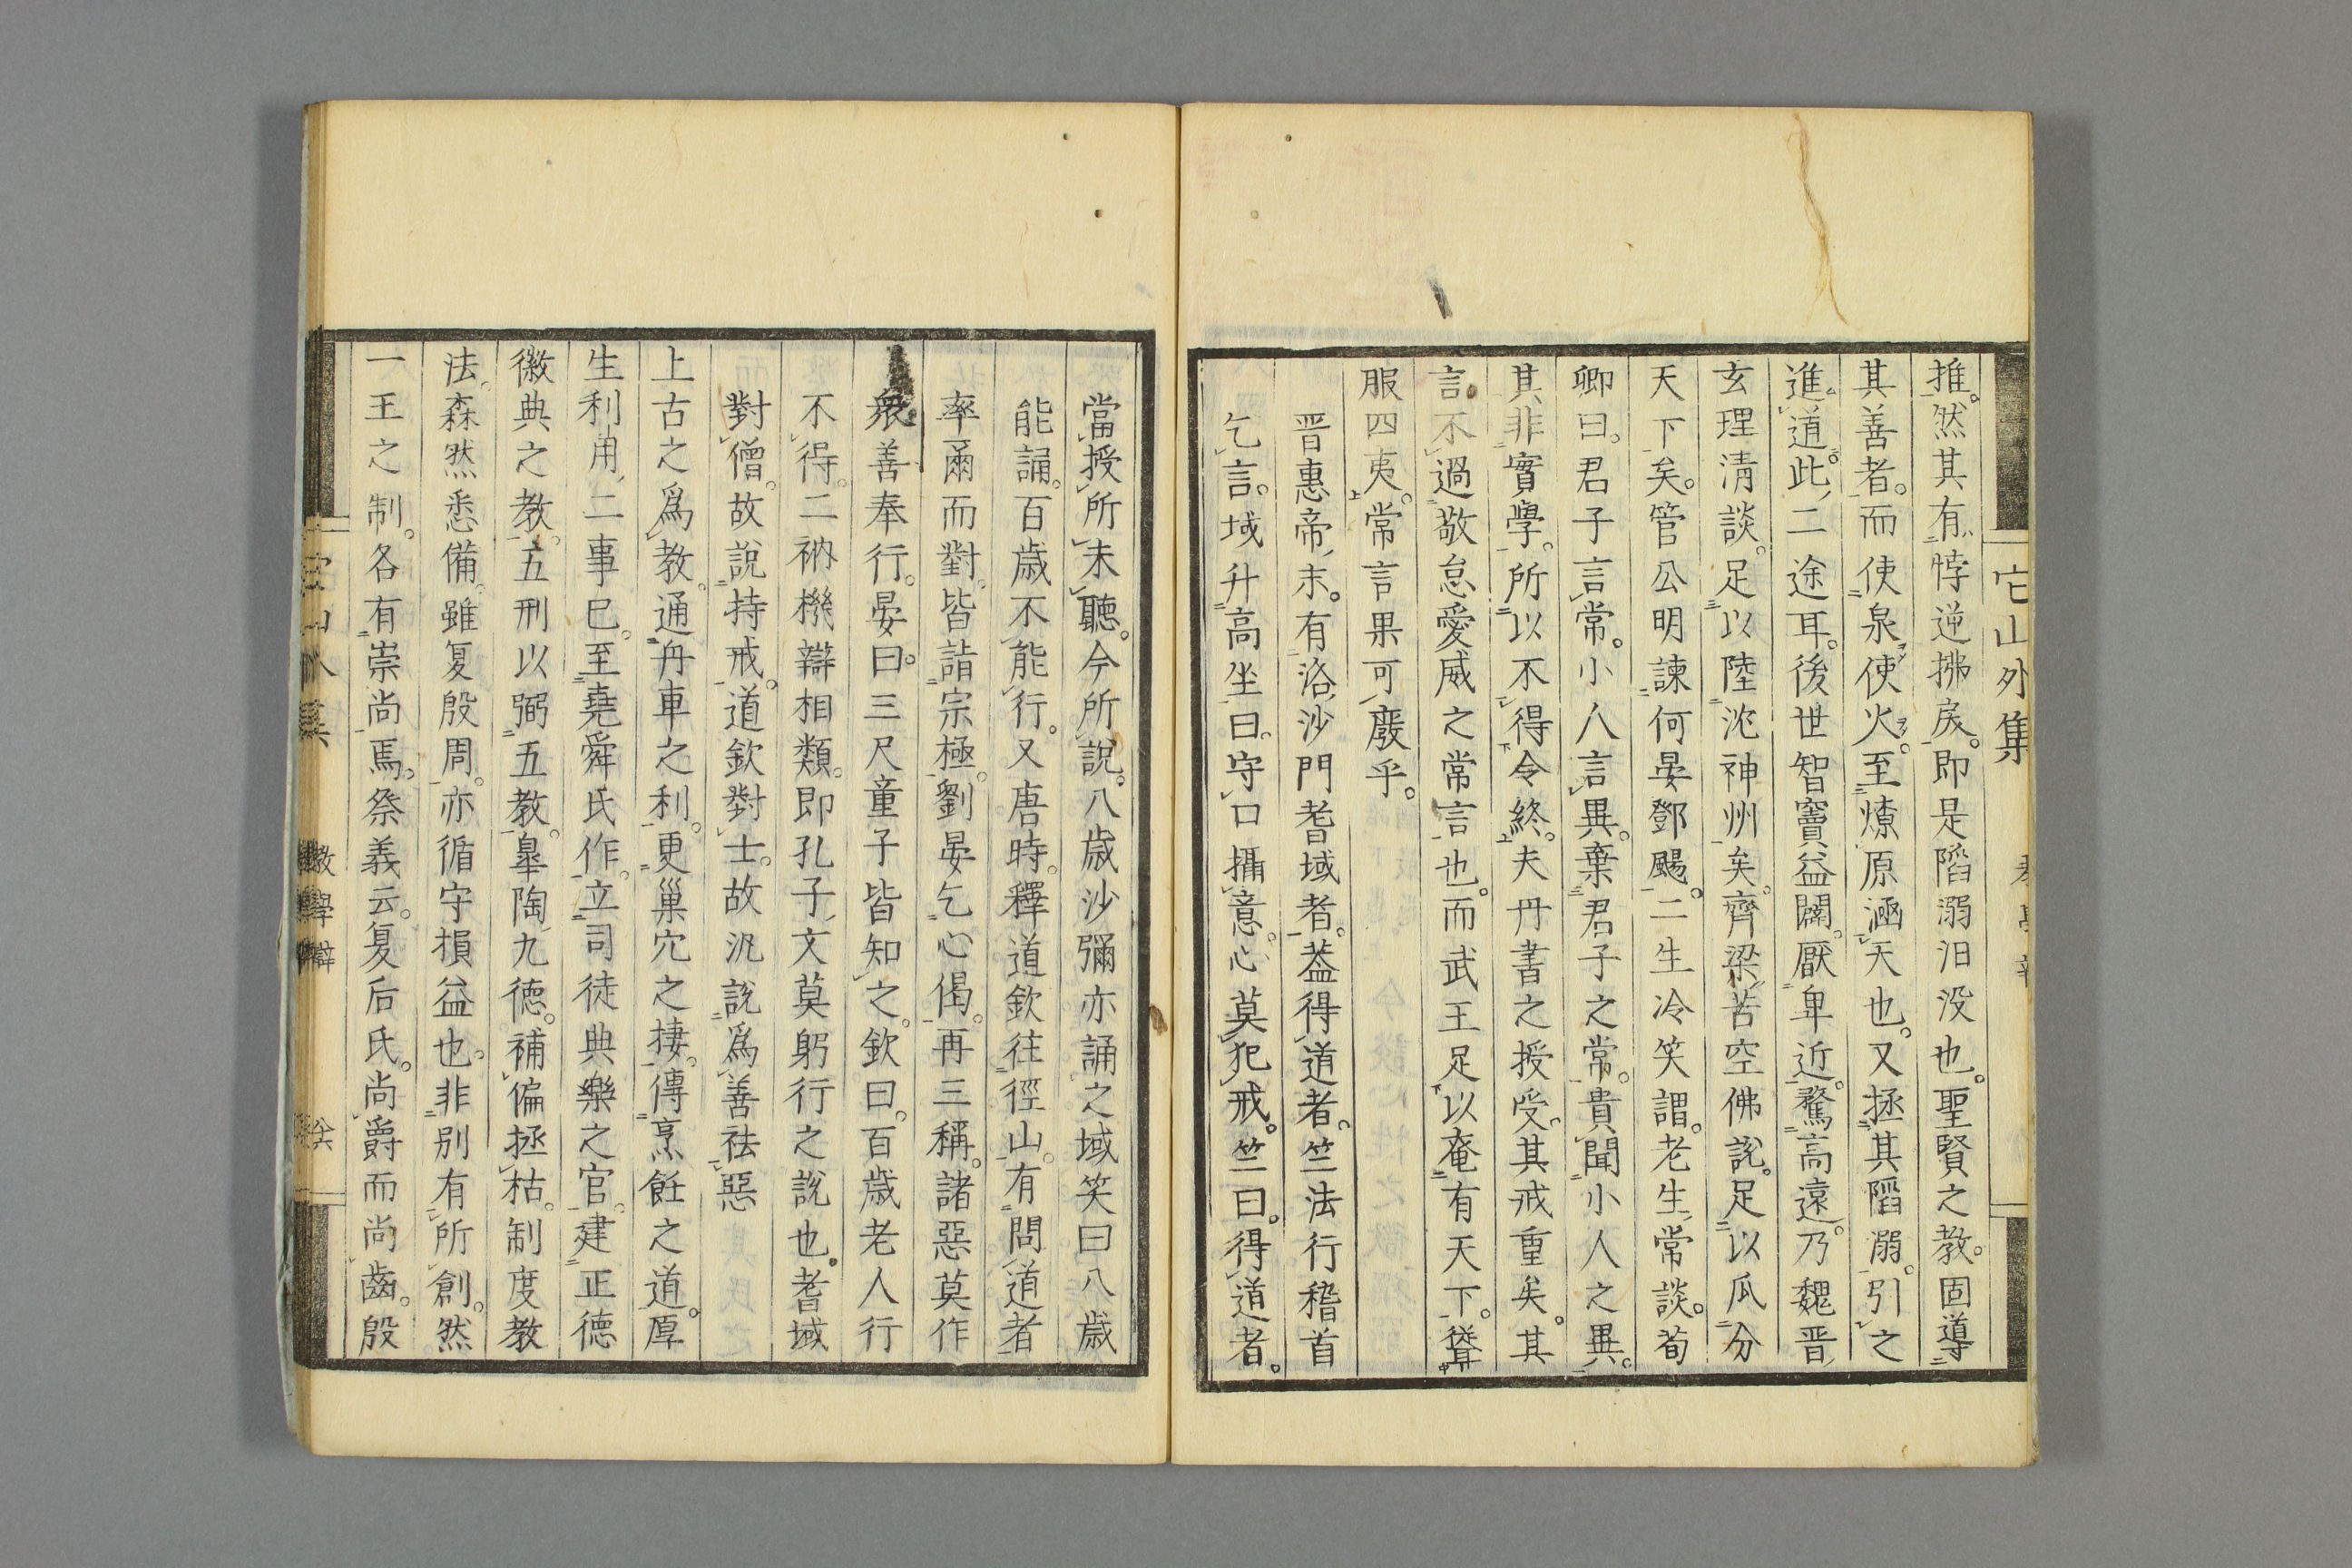 它山外集
推。然其有悖逆拂戾。即是陷溺汨没也。聖賢之教。固導
其善者。而使泉使火。至燎原涵天也。又拯其陷溺。引之
進道。此二途耳。後世智竇益闢。厭卑近。騖高遠。乃魏晋
玄理清談。足以陸沈神州矣。齊梁苦空佛説。足以瓜分
天下矣。管公明諫何晏鄧颺。二生冷笑謂。老生常談。荀
卿曰。君子言常。小人言異。棄君子之常。貴聞小人之異。
其非實學。所以不得令終。夫丹書之授受。其戒重矣。其
言不過敬怠愛威之常言也。而武王足以奄有天下。聾
服四夷。常言果可廢乎。
晋惠帝末。有洛沙門耆域者。葢得道者。竺法行稽首
乞言。域升高坐曰。守口攝意。心莫犯戒。竺曰。得道者。
當授所未聽。今所説。八歳沙彌亦誦之域笑曰八歳
能誦。百歳不能行。又唐時。釋道欽往徑山。有問道者
率爾而對。皆詣宗極。劉晏乞心偈。再三稱。諸惡莫作
衆善奉行。晏曰。三尺童子皆知之。欽曰。百歳老人行
不得。二衲機辯相類。即孔子文莫躬行之説也。耆域
對僧。故説持戒。道欽對士。故汎説爲善祛惡
上古之爲教。通舟車之利。更巢穴之捿。傳烹飪之道。厚
生利用二事已。至堯舜氏作。立司徒典樂之官。建正德
徽典之教。五刑以弼五教。皐陶九德。補偏拯枯。制度教
法。森然悉備。雖复殷周。亦循守損益也。非別有所創。然
一王之制。各有崇尚焉。祭義云。复后氏。尚爵而尚齒。殷
教學辯